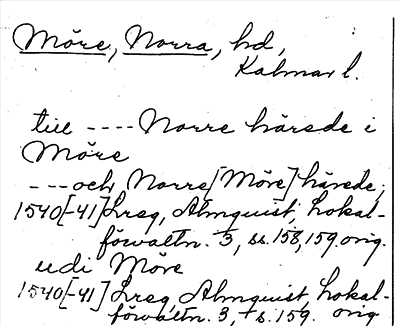 Möre, Norra, hd,
Kalmar l.
till ---- Norre härede i
Möre
--- och Norre [Möre] härede,
1540[-41] Lreg, Almquist, Lokal-
förvaltn. 3, ss. 158, 159. orig.
udi Möre
1540[-41] Lreg, Almquist, Lokal-
förvaltn. 3, s. 159. orig